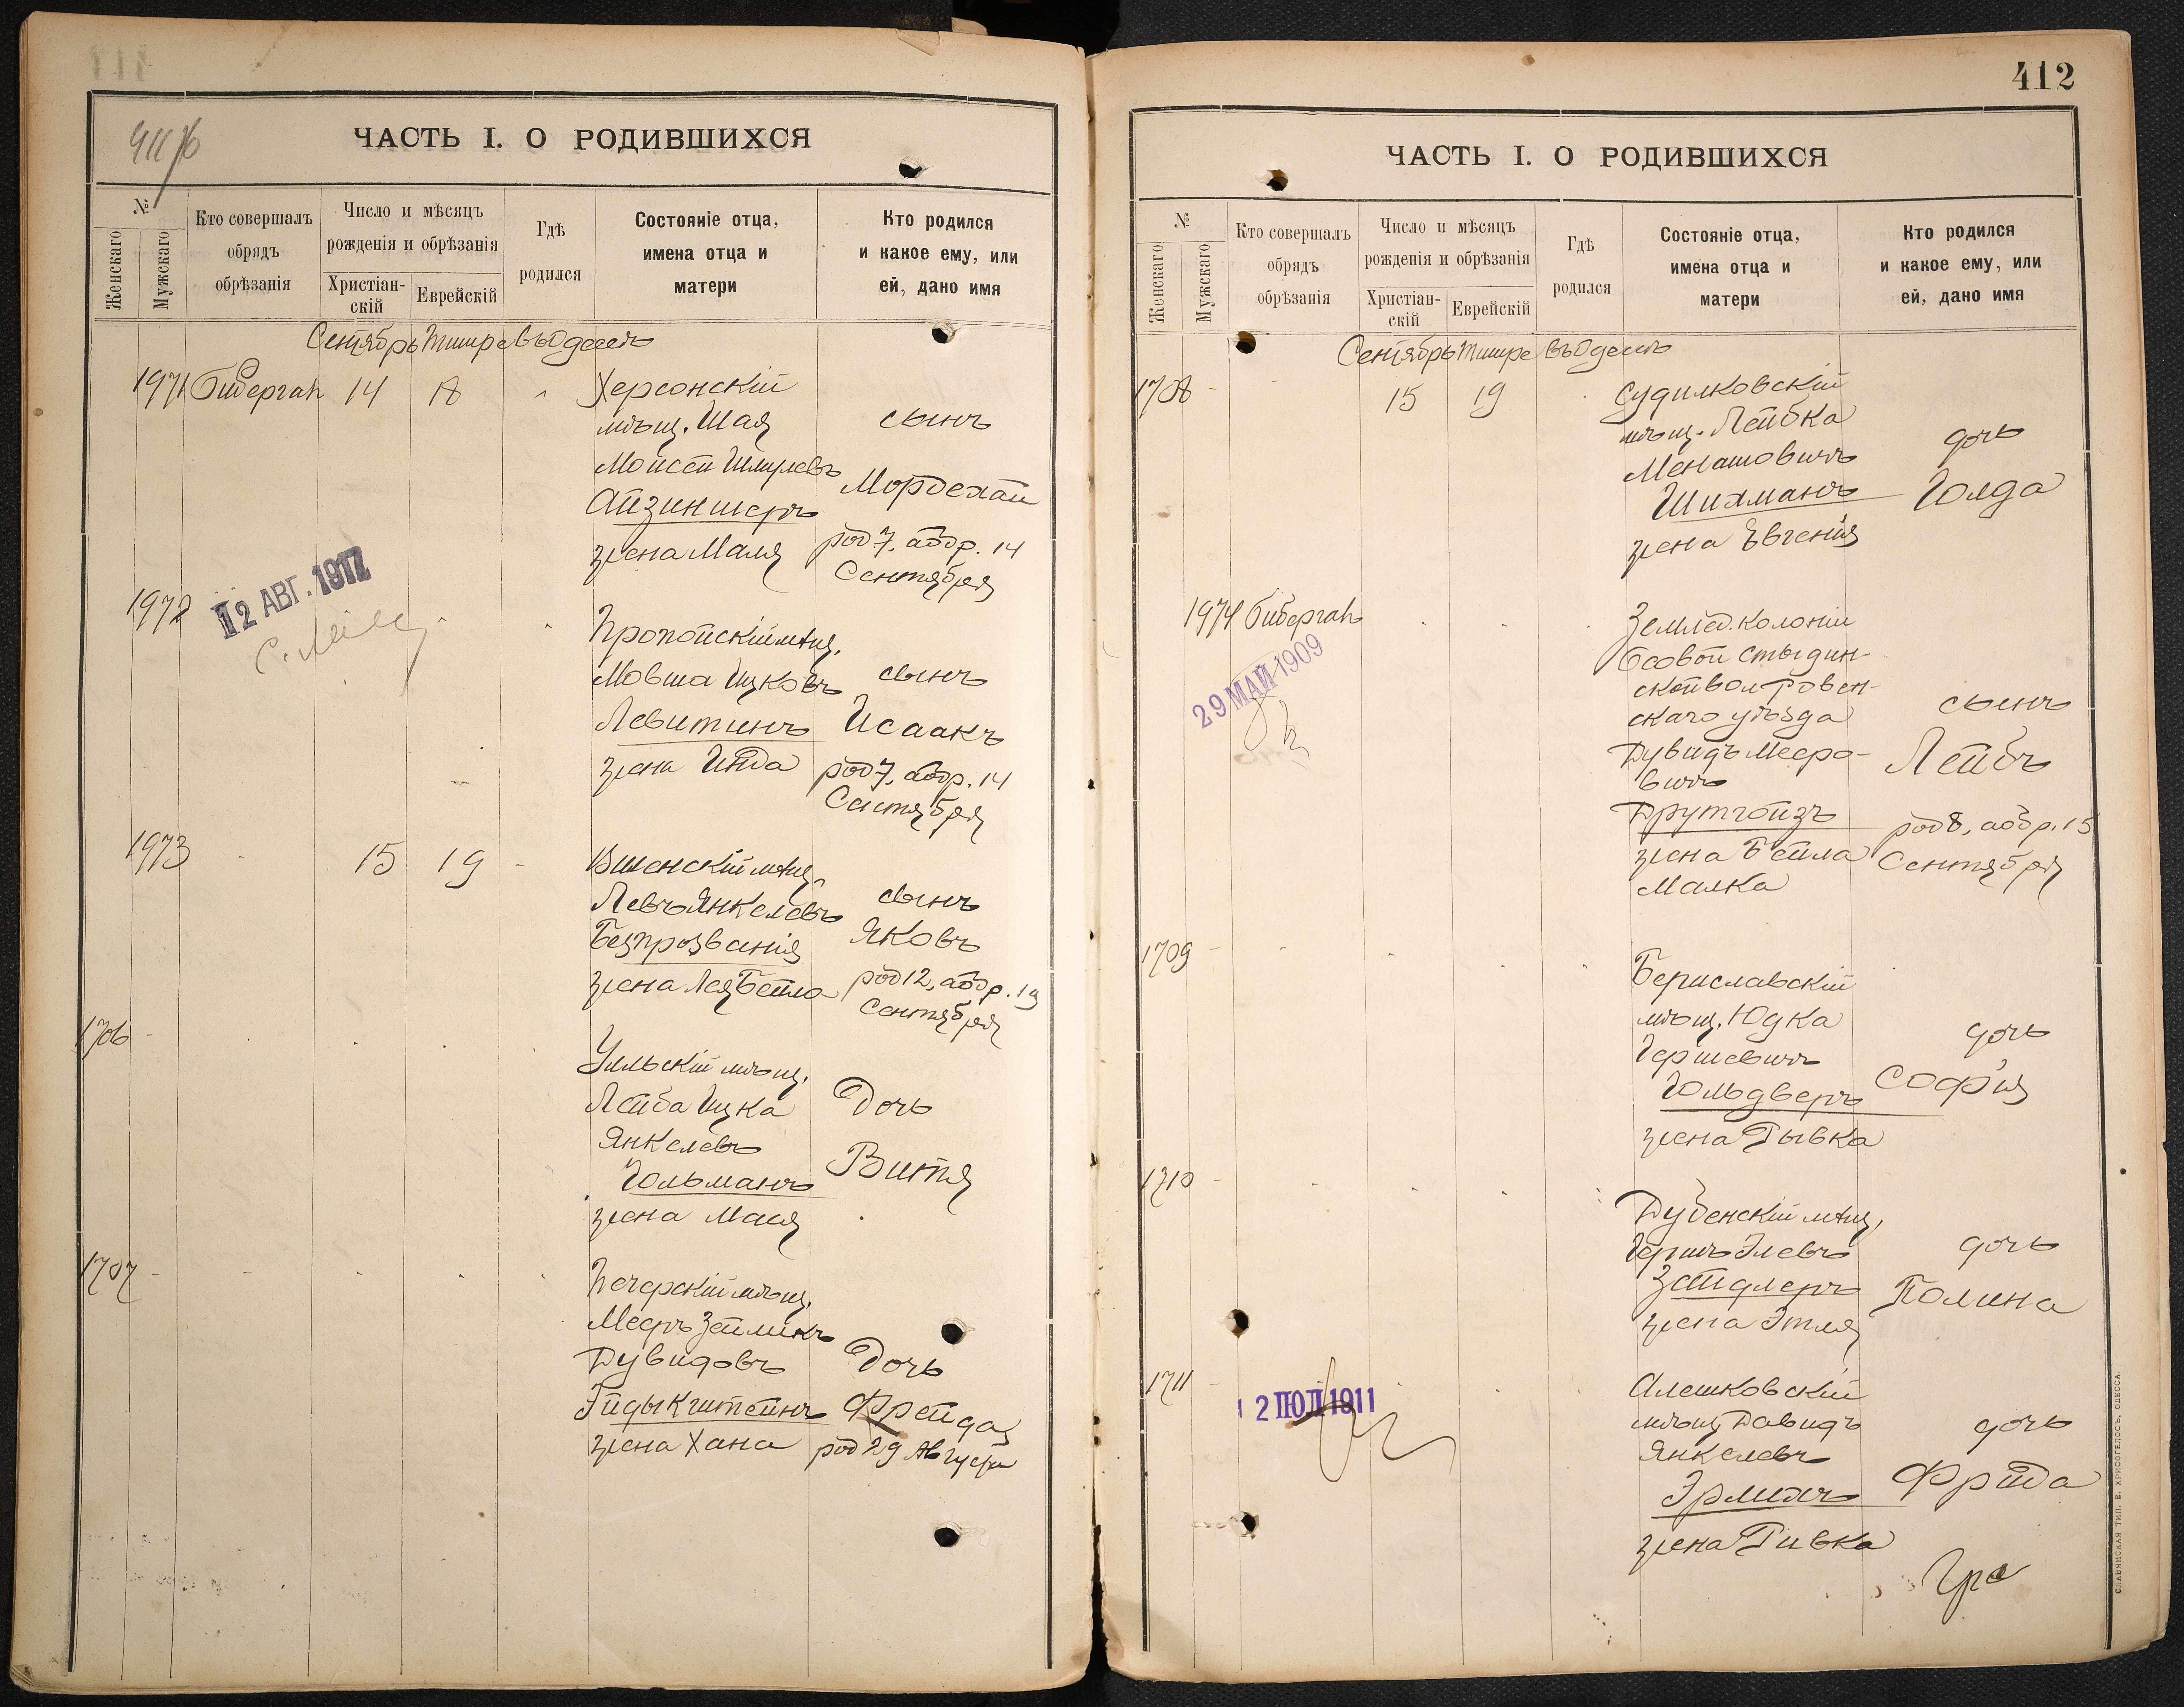 411 б
ЧАСТЬ I. О РОДИВШИХСЯ
№
Женскаго
Мужскаго
Кто совершалъ
обрядъ
обрѣзанія
Число и мѣсяцъ
рожденія и обрѣзанія
Христіан-
скій
Еврейскій
Гдѣ
родился
Состояніе отца,
имена отца и
матери
Кто родился
и какое ему, или
ей, дано имя
Сентябрь Тишре въ Одессѣ
1971 Бибергал 14 18 Херсонскій
мѣщ. Шая
Мойсей Шмулевъ
Айзиншеръ
жена Маля
сынъ
Мордехай
род 7, аобр. 14
Сентября
12 АВГ. 1912
1972 Пропойскій мѣщ.
Мовша Ицковъ
Левитинъ
жена Ита
сынъ
Исаакъ
род 7, аобр. 14
Сентября
1973 15 19 Виленскій мѣщ.
Левъ Янкелевъ
Безпрозванія
жена Лея Бейла
сынъ
Яковъ
род 12, аобр. 19
Сентября
1706 Ульскій мѣщ.
Лейба Ицка
Янкелевъ
Гольманъ
жена Мася
Дочь
Витя
1707 Печерскій мѣщ.
Мееръ Зейликъ
Дувидовъ
жена Хана
Дочь
Фрейда
род 29 Августа
412
ЧАСТЬ I. О РОДИВШИХСЯ
№
Женскаго
Мужскаго
Кто совершалъ
обрядъ
обрѣзанія
Число и мѣсяцъ
рожденія и обрѣзанія
Христіан-
скій
Еврейскій
Гдѣ
родился
Состояніе отца,
имена отца и
матери
Кто родился
и какое ему, или
ей, дано имя
Сентябрь Тишре въ Одессѣ
1708 15 19 Судилковскій
мѣщ. Лейбка
Менашовичъ
Шихманъ
жена Евгенія
дочь
Голда
1974 Бибергал Землед. колоніи
Осовой Стыдин-
ской вол. Ровен-
скаго уѣзда
Дувидъ Мееро-
вичъ
Друтгойзъ
жена Бейла
Малка
сынъ
Лейбъ
род 8, аобр. 15
Сентября
29 МАЙ 1909
1709 Бериславскій
мѣщ. Юдка
Гершевичъ
Гольдверъ
жена Рывка
дочь
Софія
1710 Дубенскій мѣщ.
Гершъ Элевъ
Зейдлеръ
жена Этля
дочь
Полина
1711 Алешковскій
мѣщ. Давидъ
Янкелевъ
Эрлихъ
жена Ривка
дочь
Фрида
12 ІЮЛ 1911
СЛАВЯНСКАЯ ТИП. Е. ХРИСОГЕЛОСЪ, ОДЕССА.